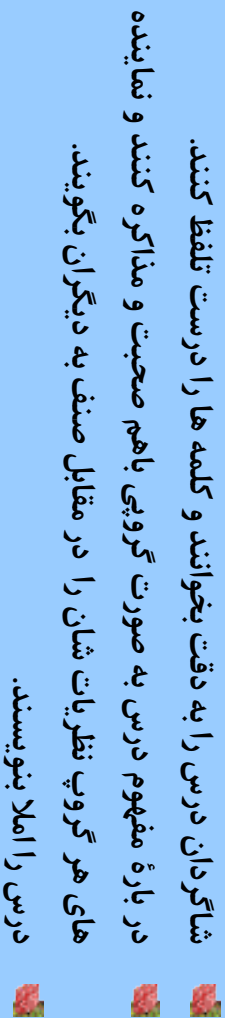 شاگردان درس را به دقت بخوانند و کلمه ها را درست تلفظ کنند.
در بارۀ مفهوم درس به صورت گروپی باهم صحبت و مذاکره کنند و نماینده
های هر گروپ نظریات شان را در مقابل صنف به دیگران بگویند.
درس را املا بنویسند.